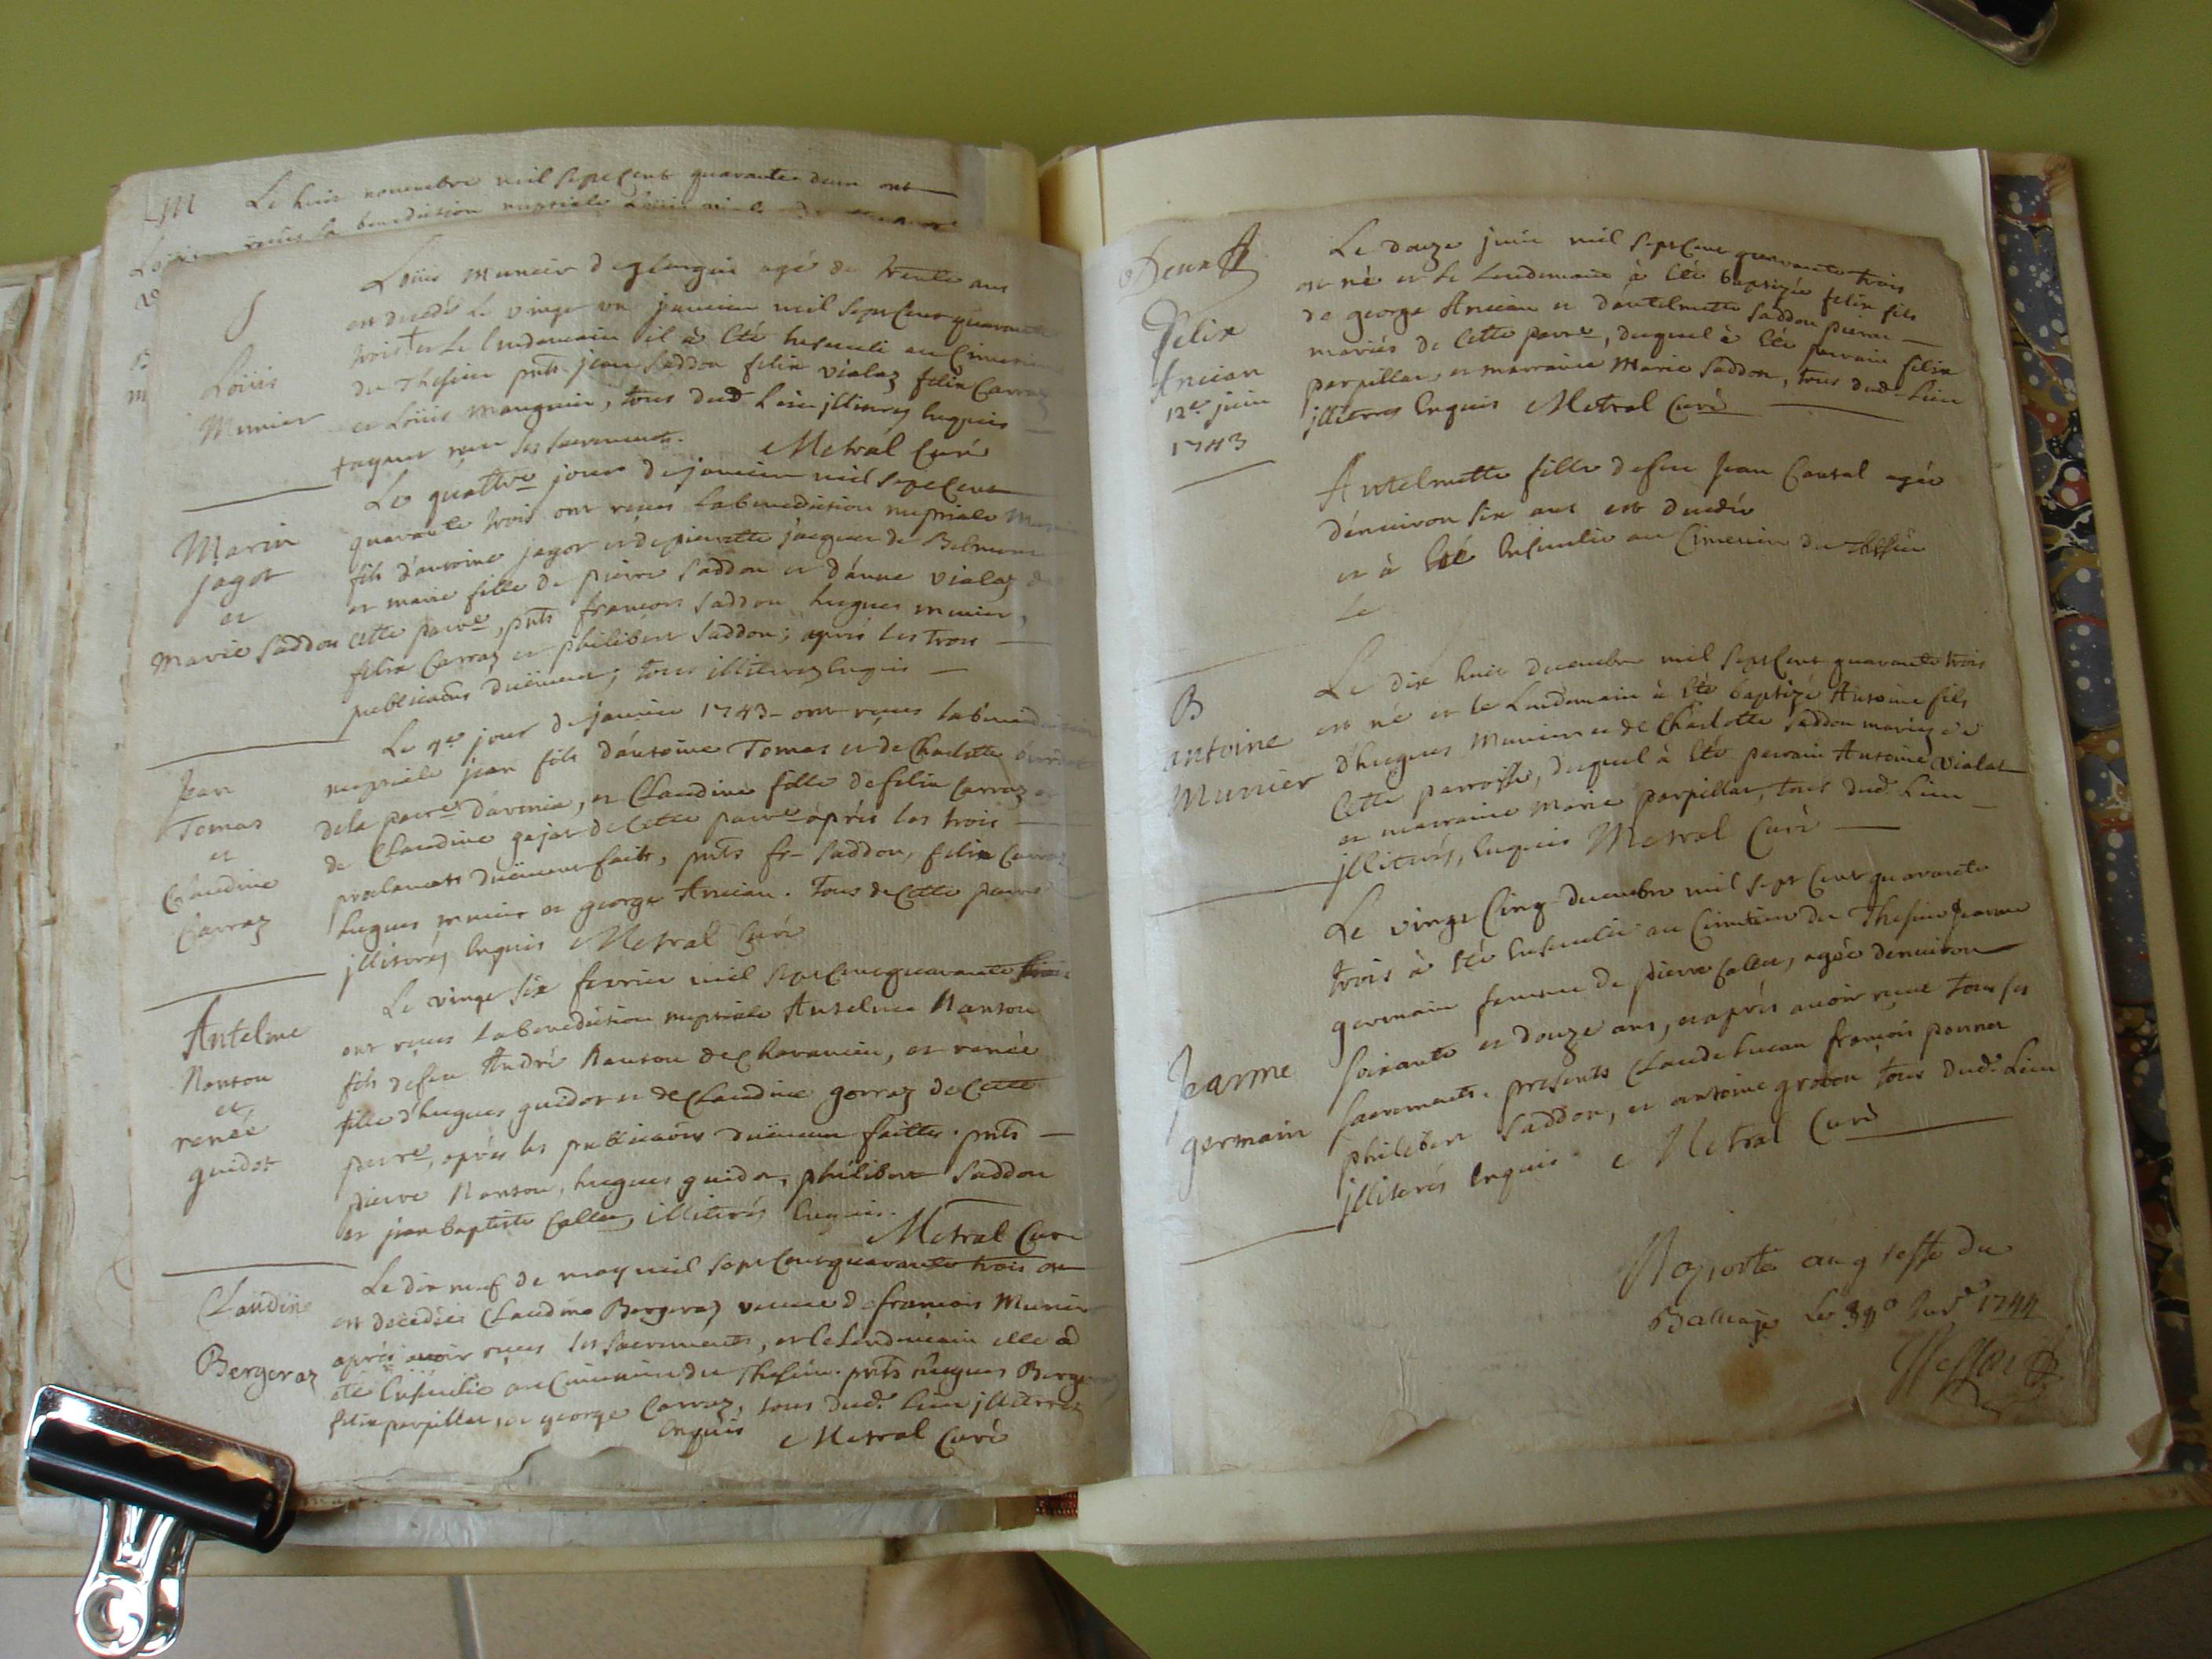 M
Le huit novembre mil sept cent quarante deux ont
receus la benediction nuptiale Loüis
S
Loüis
Munier
Loüis Munier agé de trente ans
est decedé Le vingt un janvier mil sept cent quarante
trois + et Le lendemain il à eté enseveli au Cimetiere
du Thesieu pnts jean Saddon felix vialaz felix Carraz
et Loüis Manguin, tous dud Lieu illiterez enquis
+ receu ses sacrements. Metral Curé
Marin
jagot
et
Marie Saddon
Le quattre jour de janvier mil sept Cent
quarante trois ont receus La benediction nuptiale
fils d'antoine jagot et de pierrette jacquer de Belmont
et marie fille de pierre Saddon et d'anne vialaz de
cette parre, pnts francois Saddon hugues munier,
felix Carraz et philibert Saddon; aprés les trois
publications duëment, tous illiterez enquis
Jean
Tomas
et
Claudine
Carraz
Le 7e jour de janvier 1743 ont receus la benediction
nuptiale jean fils d'antoine Tomas et de Charlotte
de la parre d'avenia, et Claudine fille de felix Carraz et
de Claudine gajat de Cette parre aprés les trois
proclamats duëment faits, pnts fr Saddon, felix Carraz
hugues munier et george Ancian. Tous de Cette parre
jlliterés enquis Metral Curé
Antelme
Nanton
et
renée
guidot
Le vingt six fevrier mil sept Cent quarante trois
ont receus La benediction nuptiale Antelme Nanton
fils de feu André Nanton de Chavanieu, et renée
fille d'hugues guidot et de Claudine gorraz de Cette
parre, aprés les publications duëment faittes. pnts
pierre Nanton, hugues guidot, philibert Saddon
et jean baptiste Callet, illiterés enquis.
Metral Curé
Claudine
Bergeraz
Le dix neuf de may mil sept Cent quarante trois
est decedée Claudine Bergeraz veuve de francois Munier
aprés avoir receus les sacrements, et le Lendemain elle a
eté Ensevelie au Cimetiere du Thesieu. pnts hugues Berge
felix parpillat, et george Carraz, tous dud. Lieu jlliterez
enquis Metral Curé
Felix
Ancian
12e juin
1743
Le douze juin mil sept Cent quarante trois
est né et le Lendemain à eté baptizée felix fils
de george Ancian et d'antelmette Saddon pierre
mariés de Cette parre, duquel à eté parrain felix
parpillat, et marraine Marie Saddon, tous dud. Lieu
jlliterés enquis Metral Curé
Antelmette fille de feu Jean Cantal agée
d'environ six ans est decedée
et à eté Ensevelie au Cimetiere du Thesieu
Le
B
antoine
Munier
Le dix huit decembre mil sept Cent quarante trois
est né et le Lendemain à eté baptizé Antoine fils
d'hugues Munier et de Charlotte Saddon mariez de
Cette parroisse, duquel à eté parrain Antoine vialat
et marraine Marie parpillat, tous dud. Lieu
jlliterés, enquis Metral Curé
Jeanne
germain
Le vingt Cinq decembre mil sept Cent quarante
trois à eté Ensevelie au Cimetiere du Thesieu Jeanne
germain femme de pierre Callet, agée d'environ
soixante et douze ans, et aprés avoir receu tous ses
sacrements. presents Claude Lucan francois ponnet
philibert Saddon, et antoine grobon tous dud. Lieu
jlliterés enquis Metral Curé
Raporté au greffe du
Balliage Le 1744